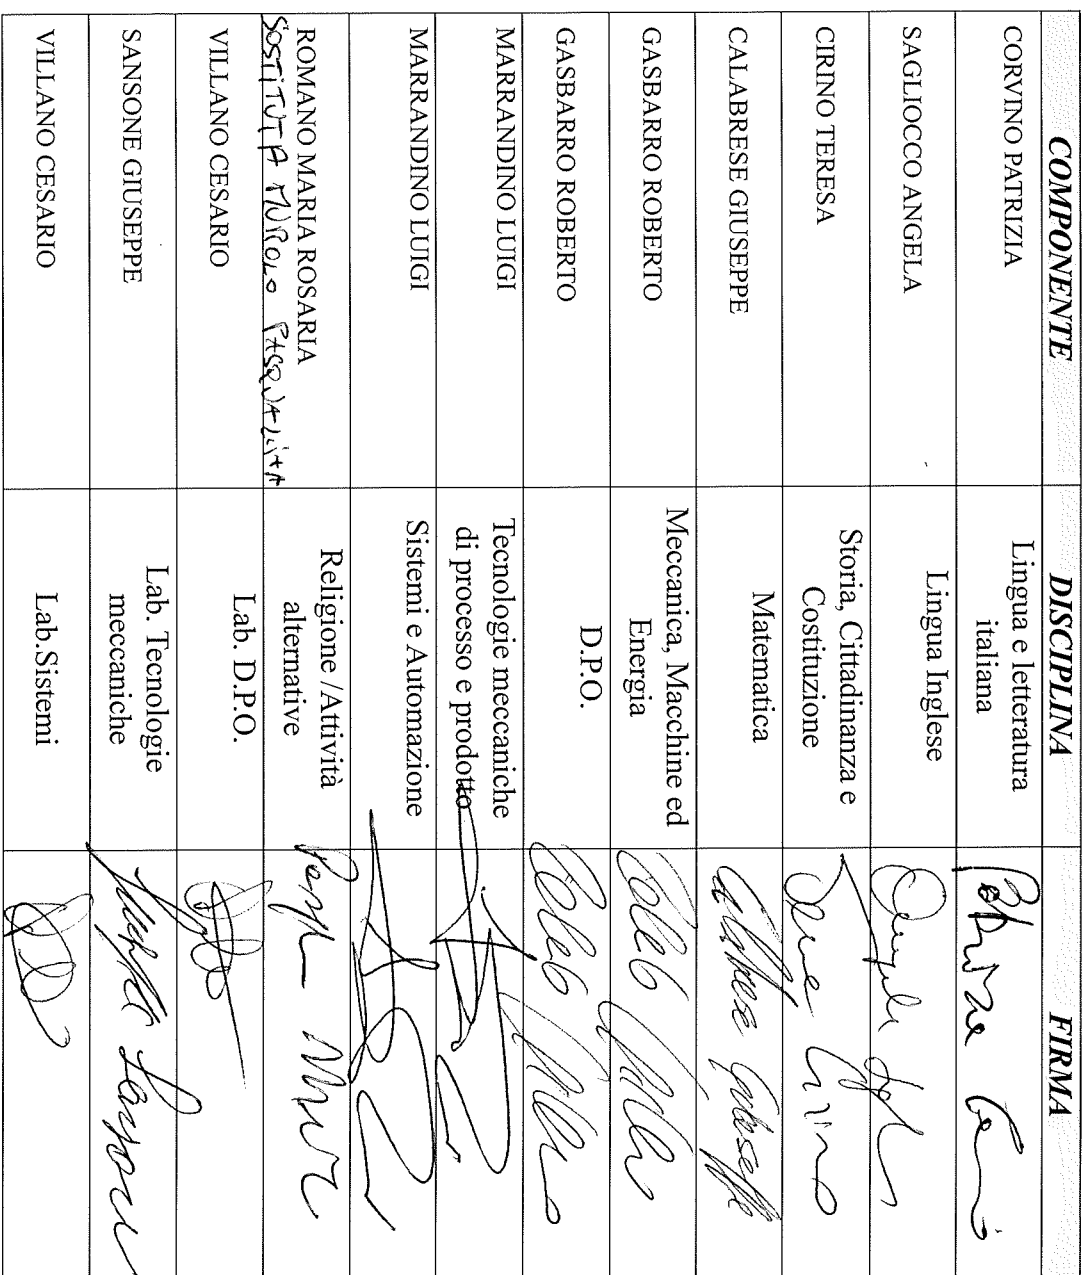 COMPONENTE DISCIPLINA FIRMA
CORVINO PATRIZIA Lingua e letteratura
italiana
SAGLIOCCO ANGELA Lingua Inglese
CIRINO TERESA Storia, Cittadinanza e
Costituzione
CALABRESE GIUSEPPE Matematica Calabrese Giuseppe
GASBARRO ROBERTO Meccanica, Macchine ed
Energia
GASBARRO ROBERTO D.P.O.
MARRANDINO LUIGI Tecnologie meccaniche
di processo e prodotto
MARRANDINO LUIGI Sistemi e Automazione
ROMANO MARIA ROSARIA Religione /Attività
SOSTITUTA MUROLO PASQUALINA alternative
VILLANO CESARIO Lab. D.P.O.
SANSONE GIUSEPPE Lab. Tecnologie
meccaniche
VILLANO CESARIO Lab.Sistemi